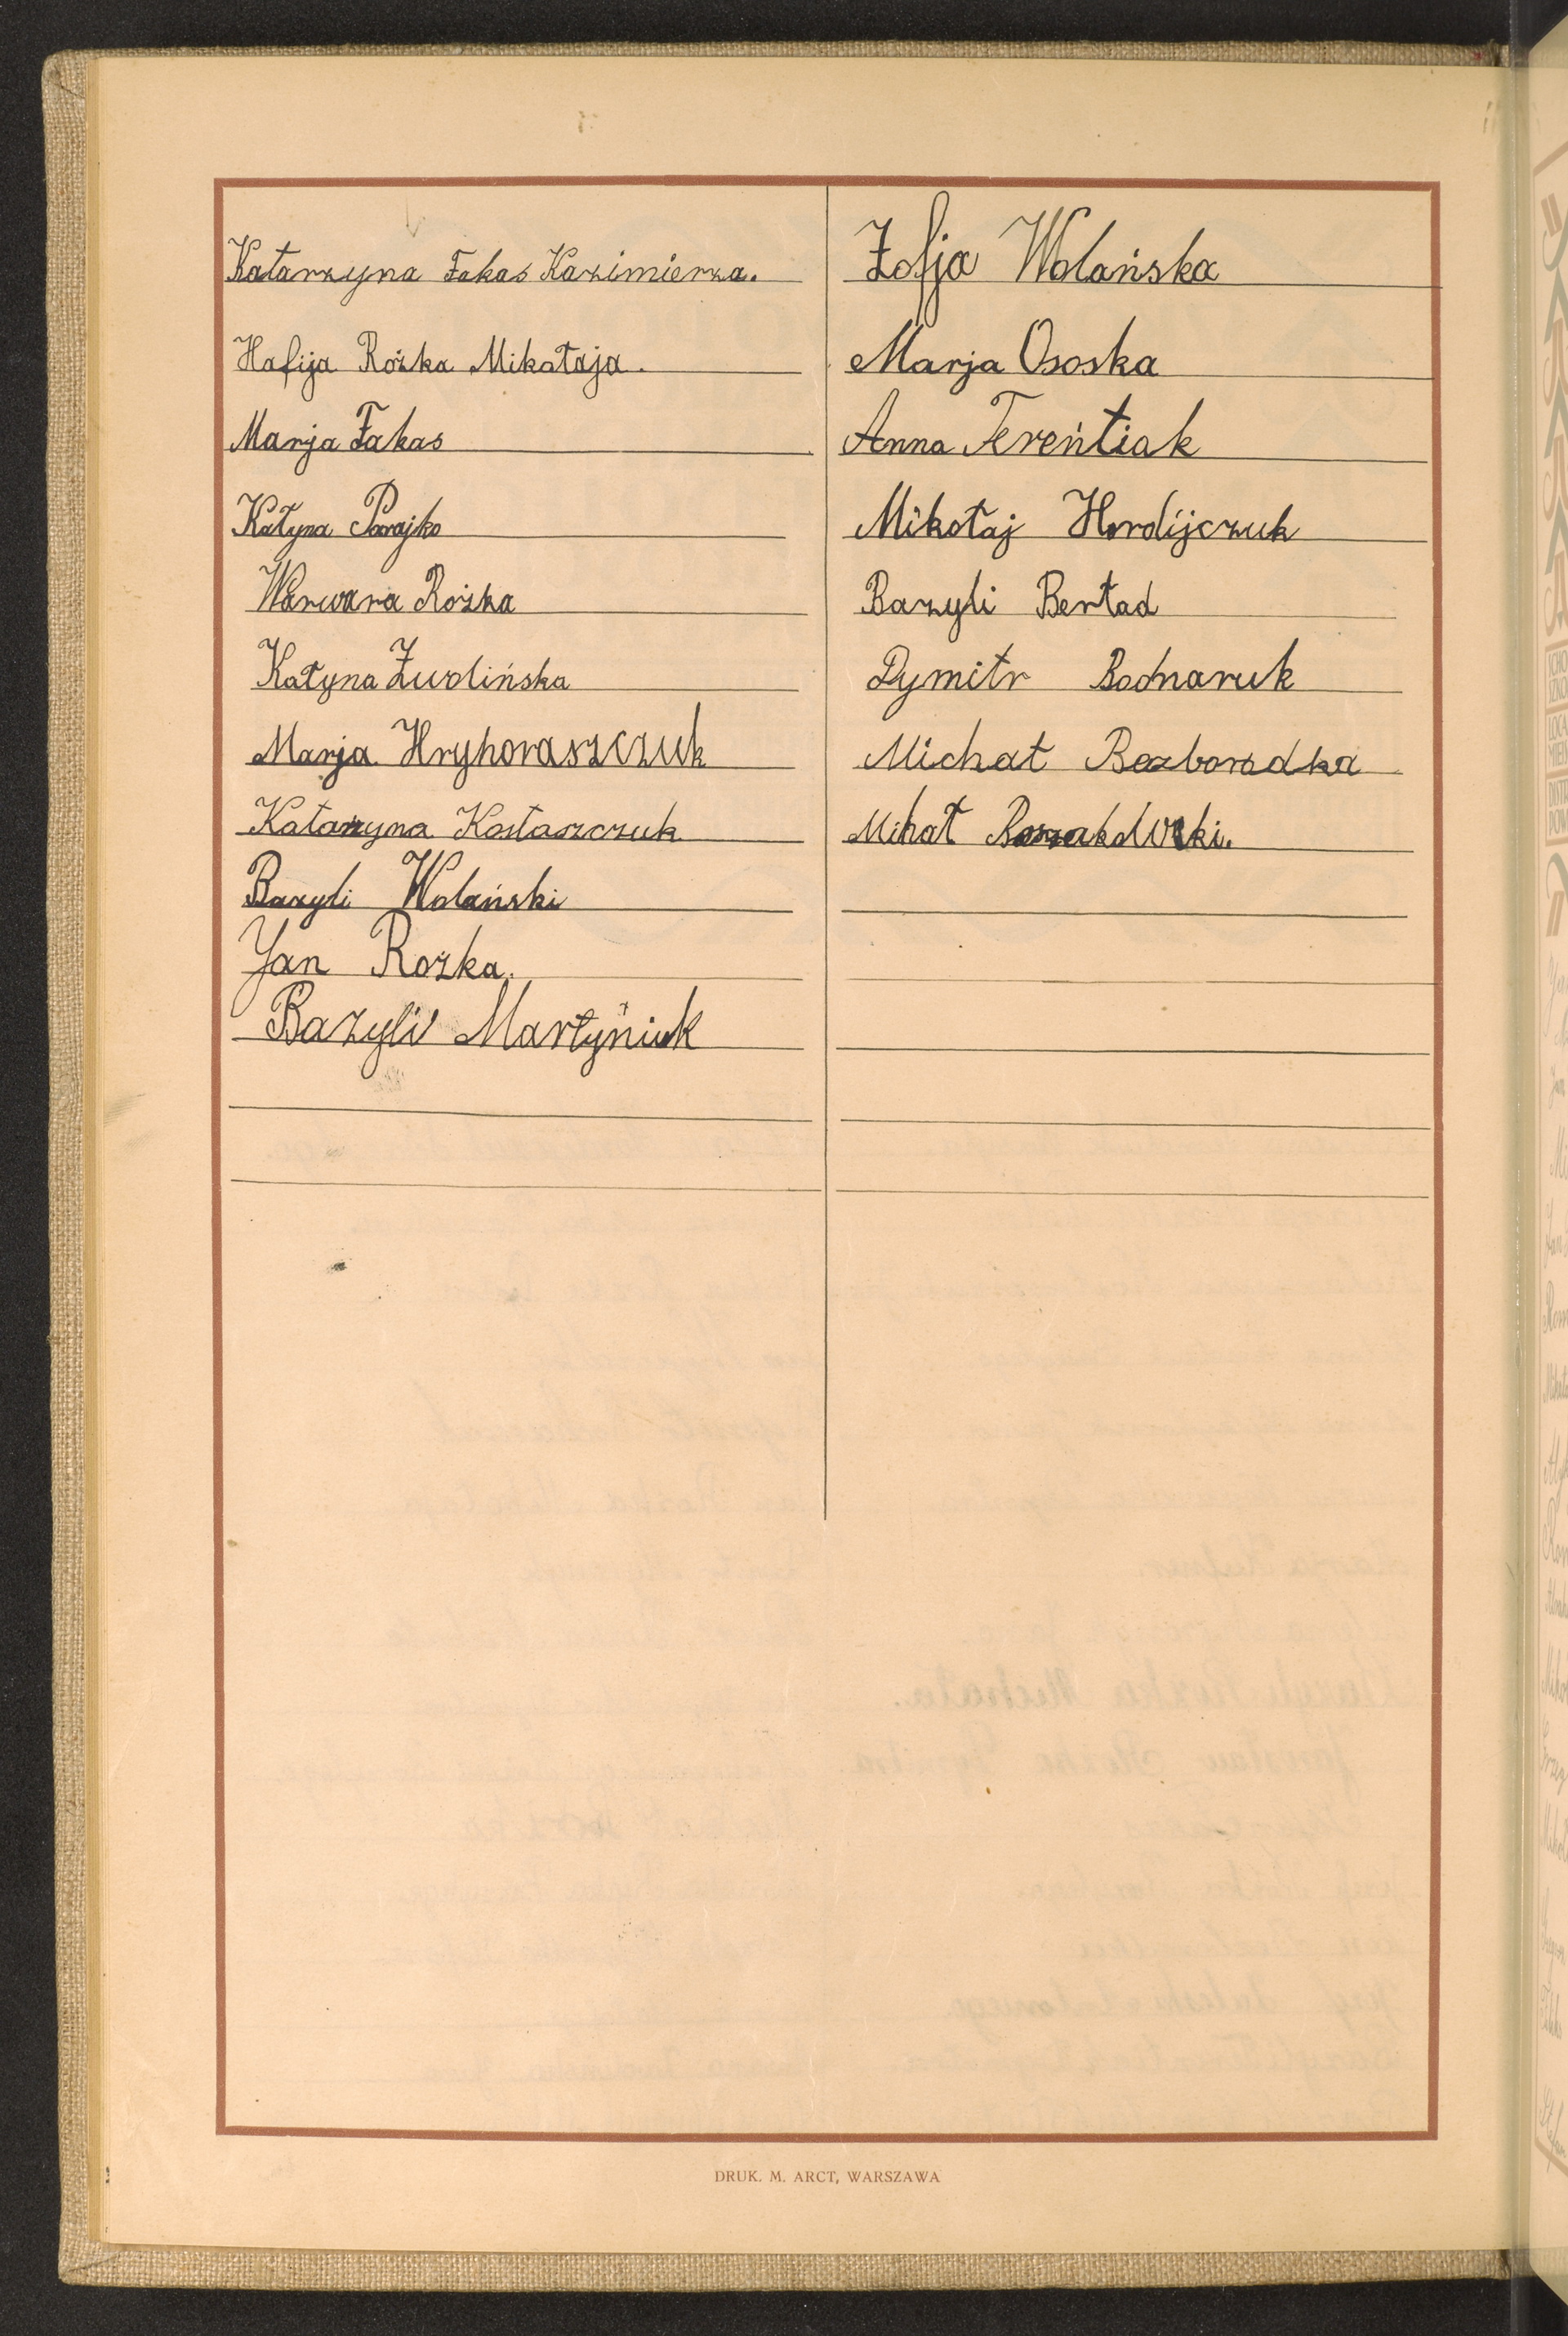 Katarzyna Łakas Kazimierza.
Hafija Rożka Mikołaja.
Marja Łakas
Katyna Parajko
Warwara Rożka
Katyna Zwolińska
Marja Hryhoraszczuk
Katarzyna Kostaszczuk
Bazyli Wolański
Jan Rozka.
Bazyli Martyniuk
Zofja Wolańska
Marja Ososka
Anna Tereńtiak
Mikołaj Hordijczuk
Bazyli Bertad
Dymitr Bodnaruk
Michał Bezborodka
Mihał
DRUK. M. ARCT, WARSZAWA